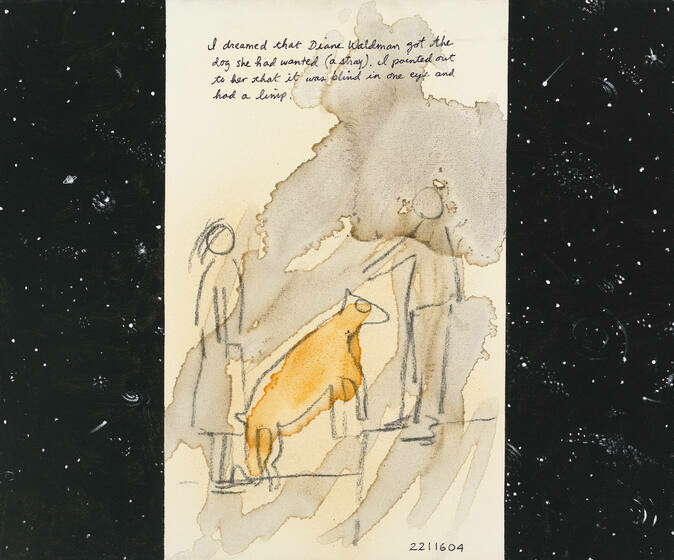 I dreamed that Diane Waldman got the
dog she had wanted (a stray). I pointed out
to her that it was blind in one eye and
had a limp.
2211604